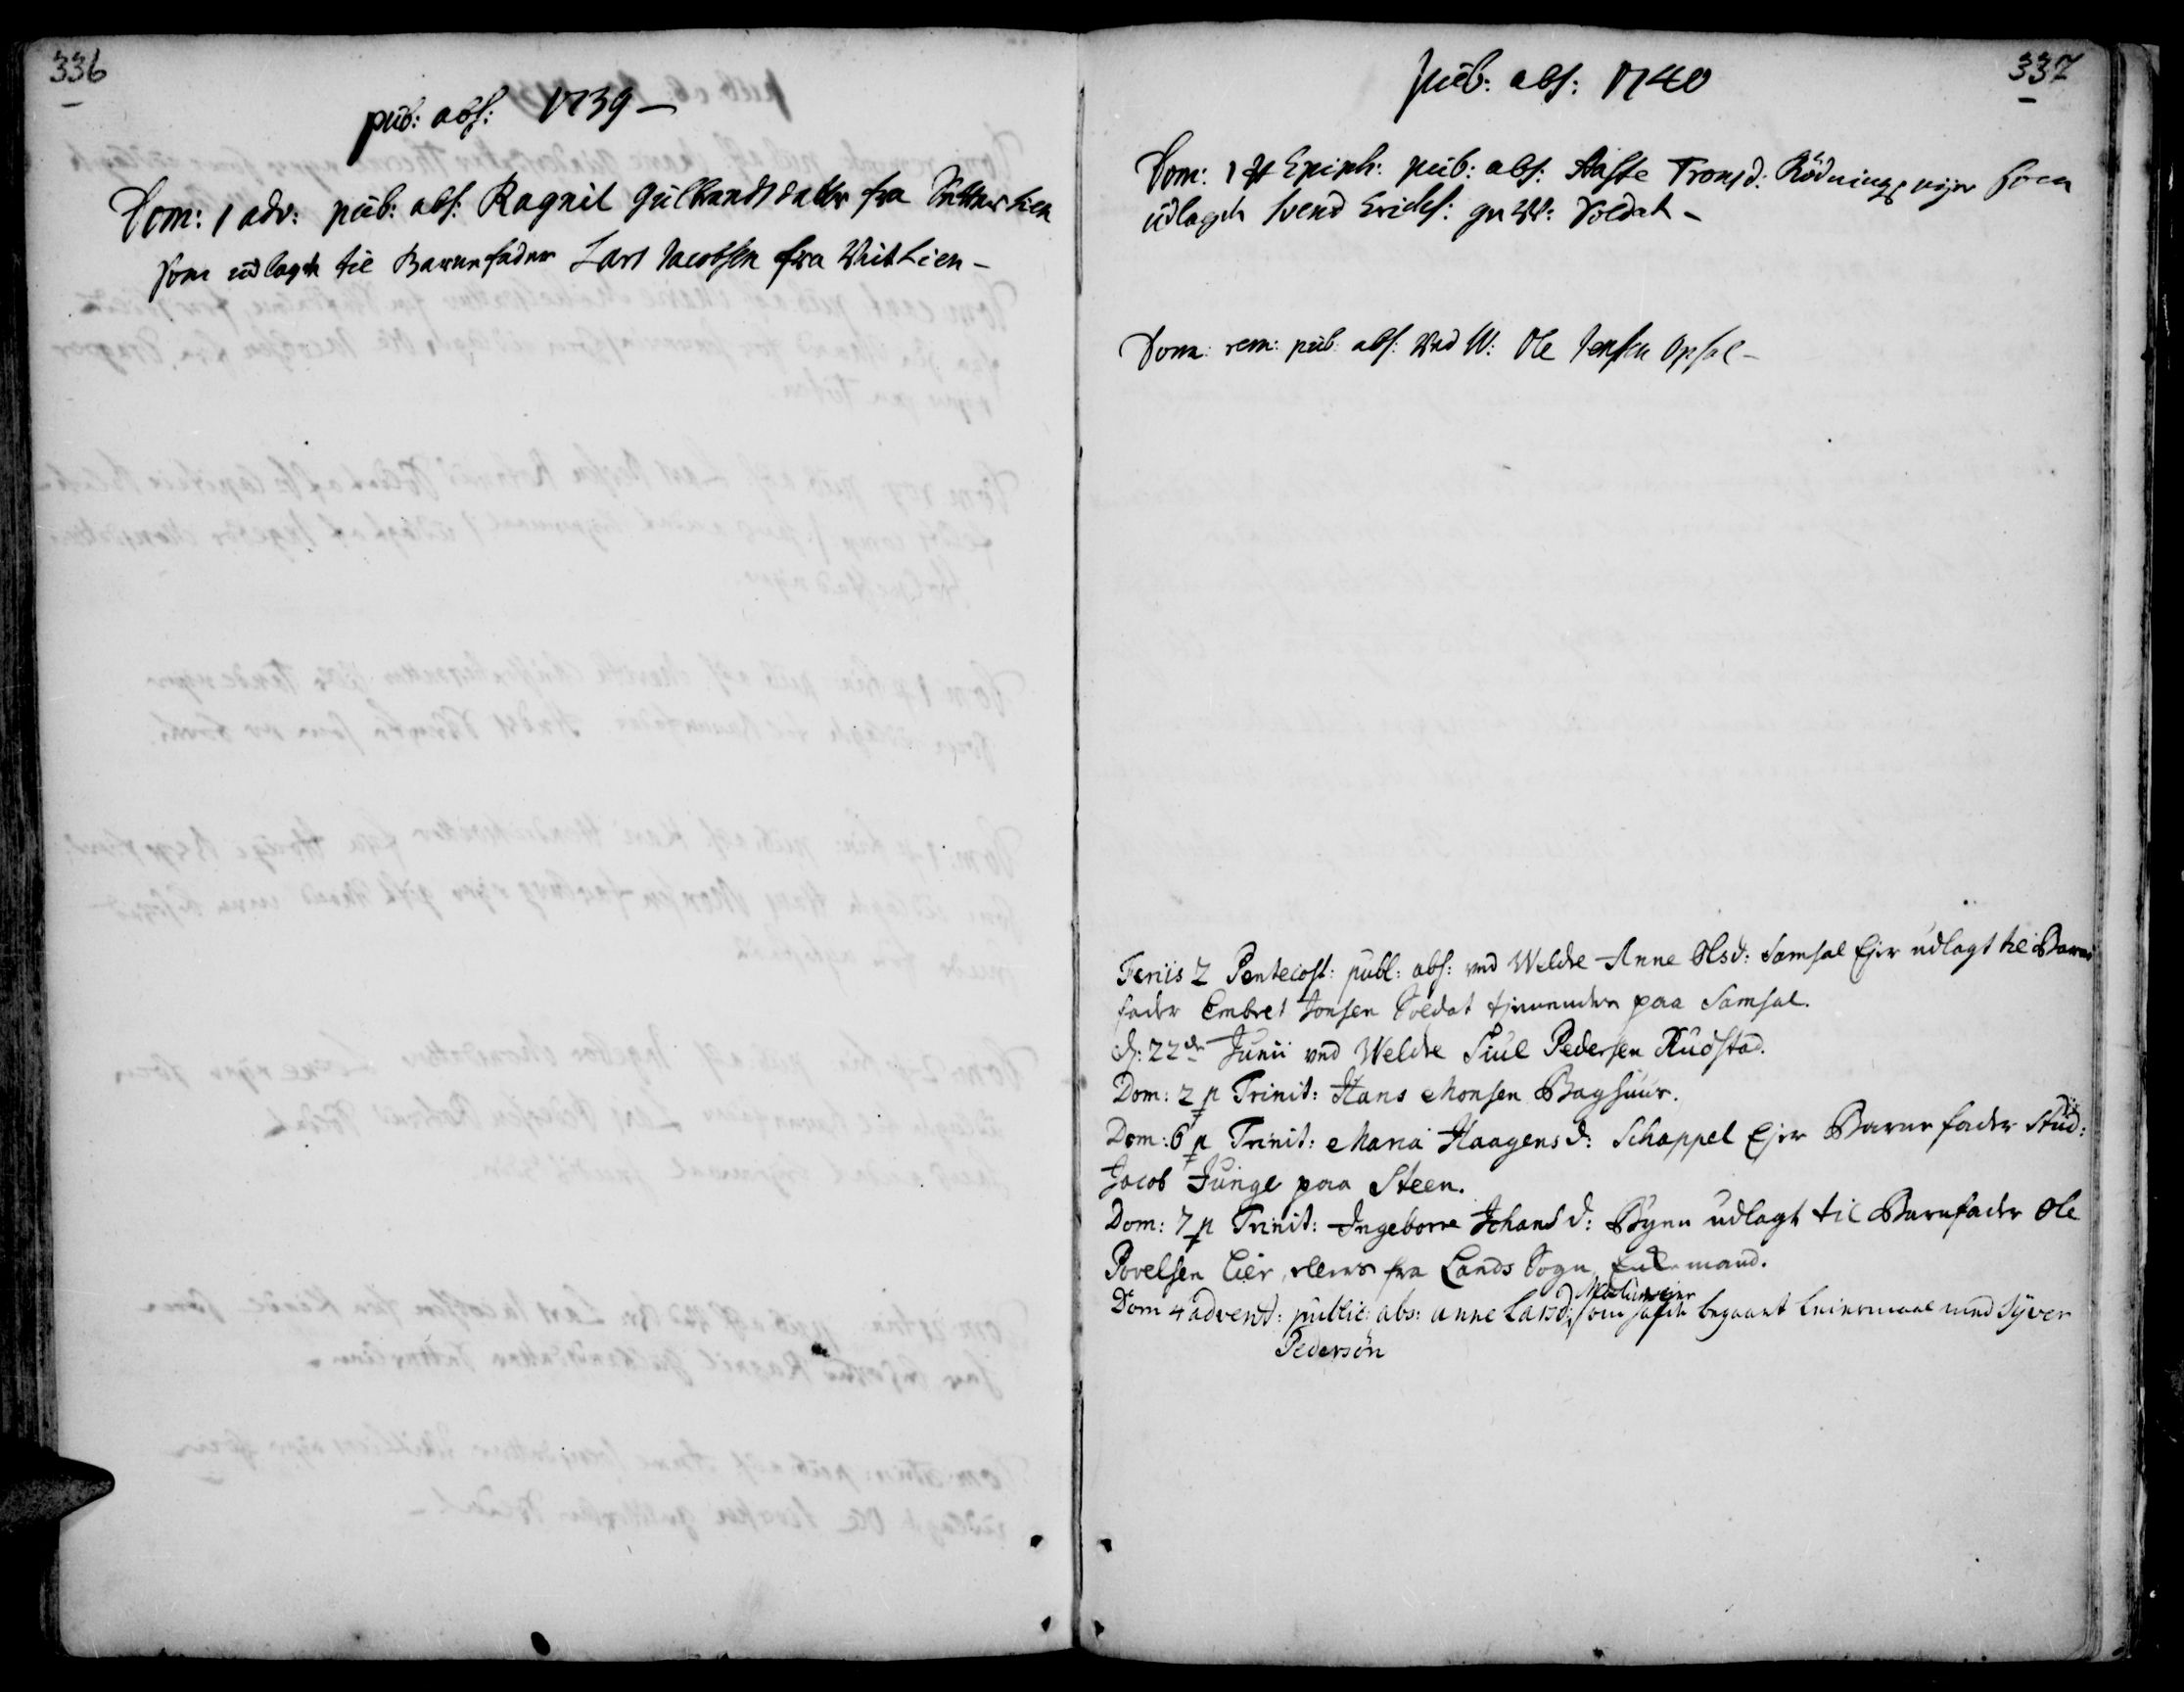 336
pub: abs: 1739 –
Dom: 1 adv: pub: abs: Ragnil Gulbrandsdatter fra Lien
som udlagde til Barnefader Lars Jacobsen fra Lien –
337
pub: abs: 1740
Dom: 1 p Epiph: pub: abs: Aaste Tronsd: Rödnings eyer som
udlagde Svend Erichs: Soldat –
Dom: rem: pub: abs: ved W: Ole Jensen Opsal –
Feriis 2 Pentecost: publ: abs: ved Weldre Anne Olsd: Samsal Ejer udlagt til Barne
fader Embret Jonsen Soldat tjenende paa Samsal.
d: 22de Junii ved Weldre Siul Pedersen Rudstad.
Dom: 2 p Trinit: Hans Monsen Baghuus.
Dom: 6 p Trinit: Maria Haagensd: Schappel Ejer Barne fader Stud:
Jacob Junge paa Steen.
Dom: 7 p Trinit: Ingeborre Johansd: Byen udlagt til Barnfader Ole
Povelsen Eier, fra Lands Sogn mand.
Dom 4 advent: public: abs: anne Larsd: som begaaet Leiermaal med Syver
Pedersøn